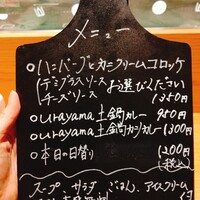 メニュー
○ハンバーグとカニクリームコロッケ
(デミグラスソース お選びください
チーズソース 1350円
○urayama土鍋カレー 950円
○urayama土鍋カツカレー 1300円
○本日の日替り 1200円
(税込)
スープ、サラダ、ごはん、アイスクリーム
付